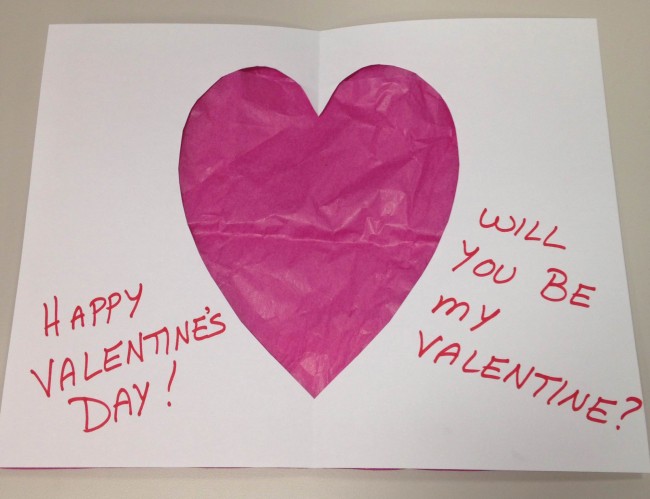 HAPPY
VALENTINE'S
DAY!
WILL
YOU BE
MY
VALENTINE?